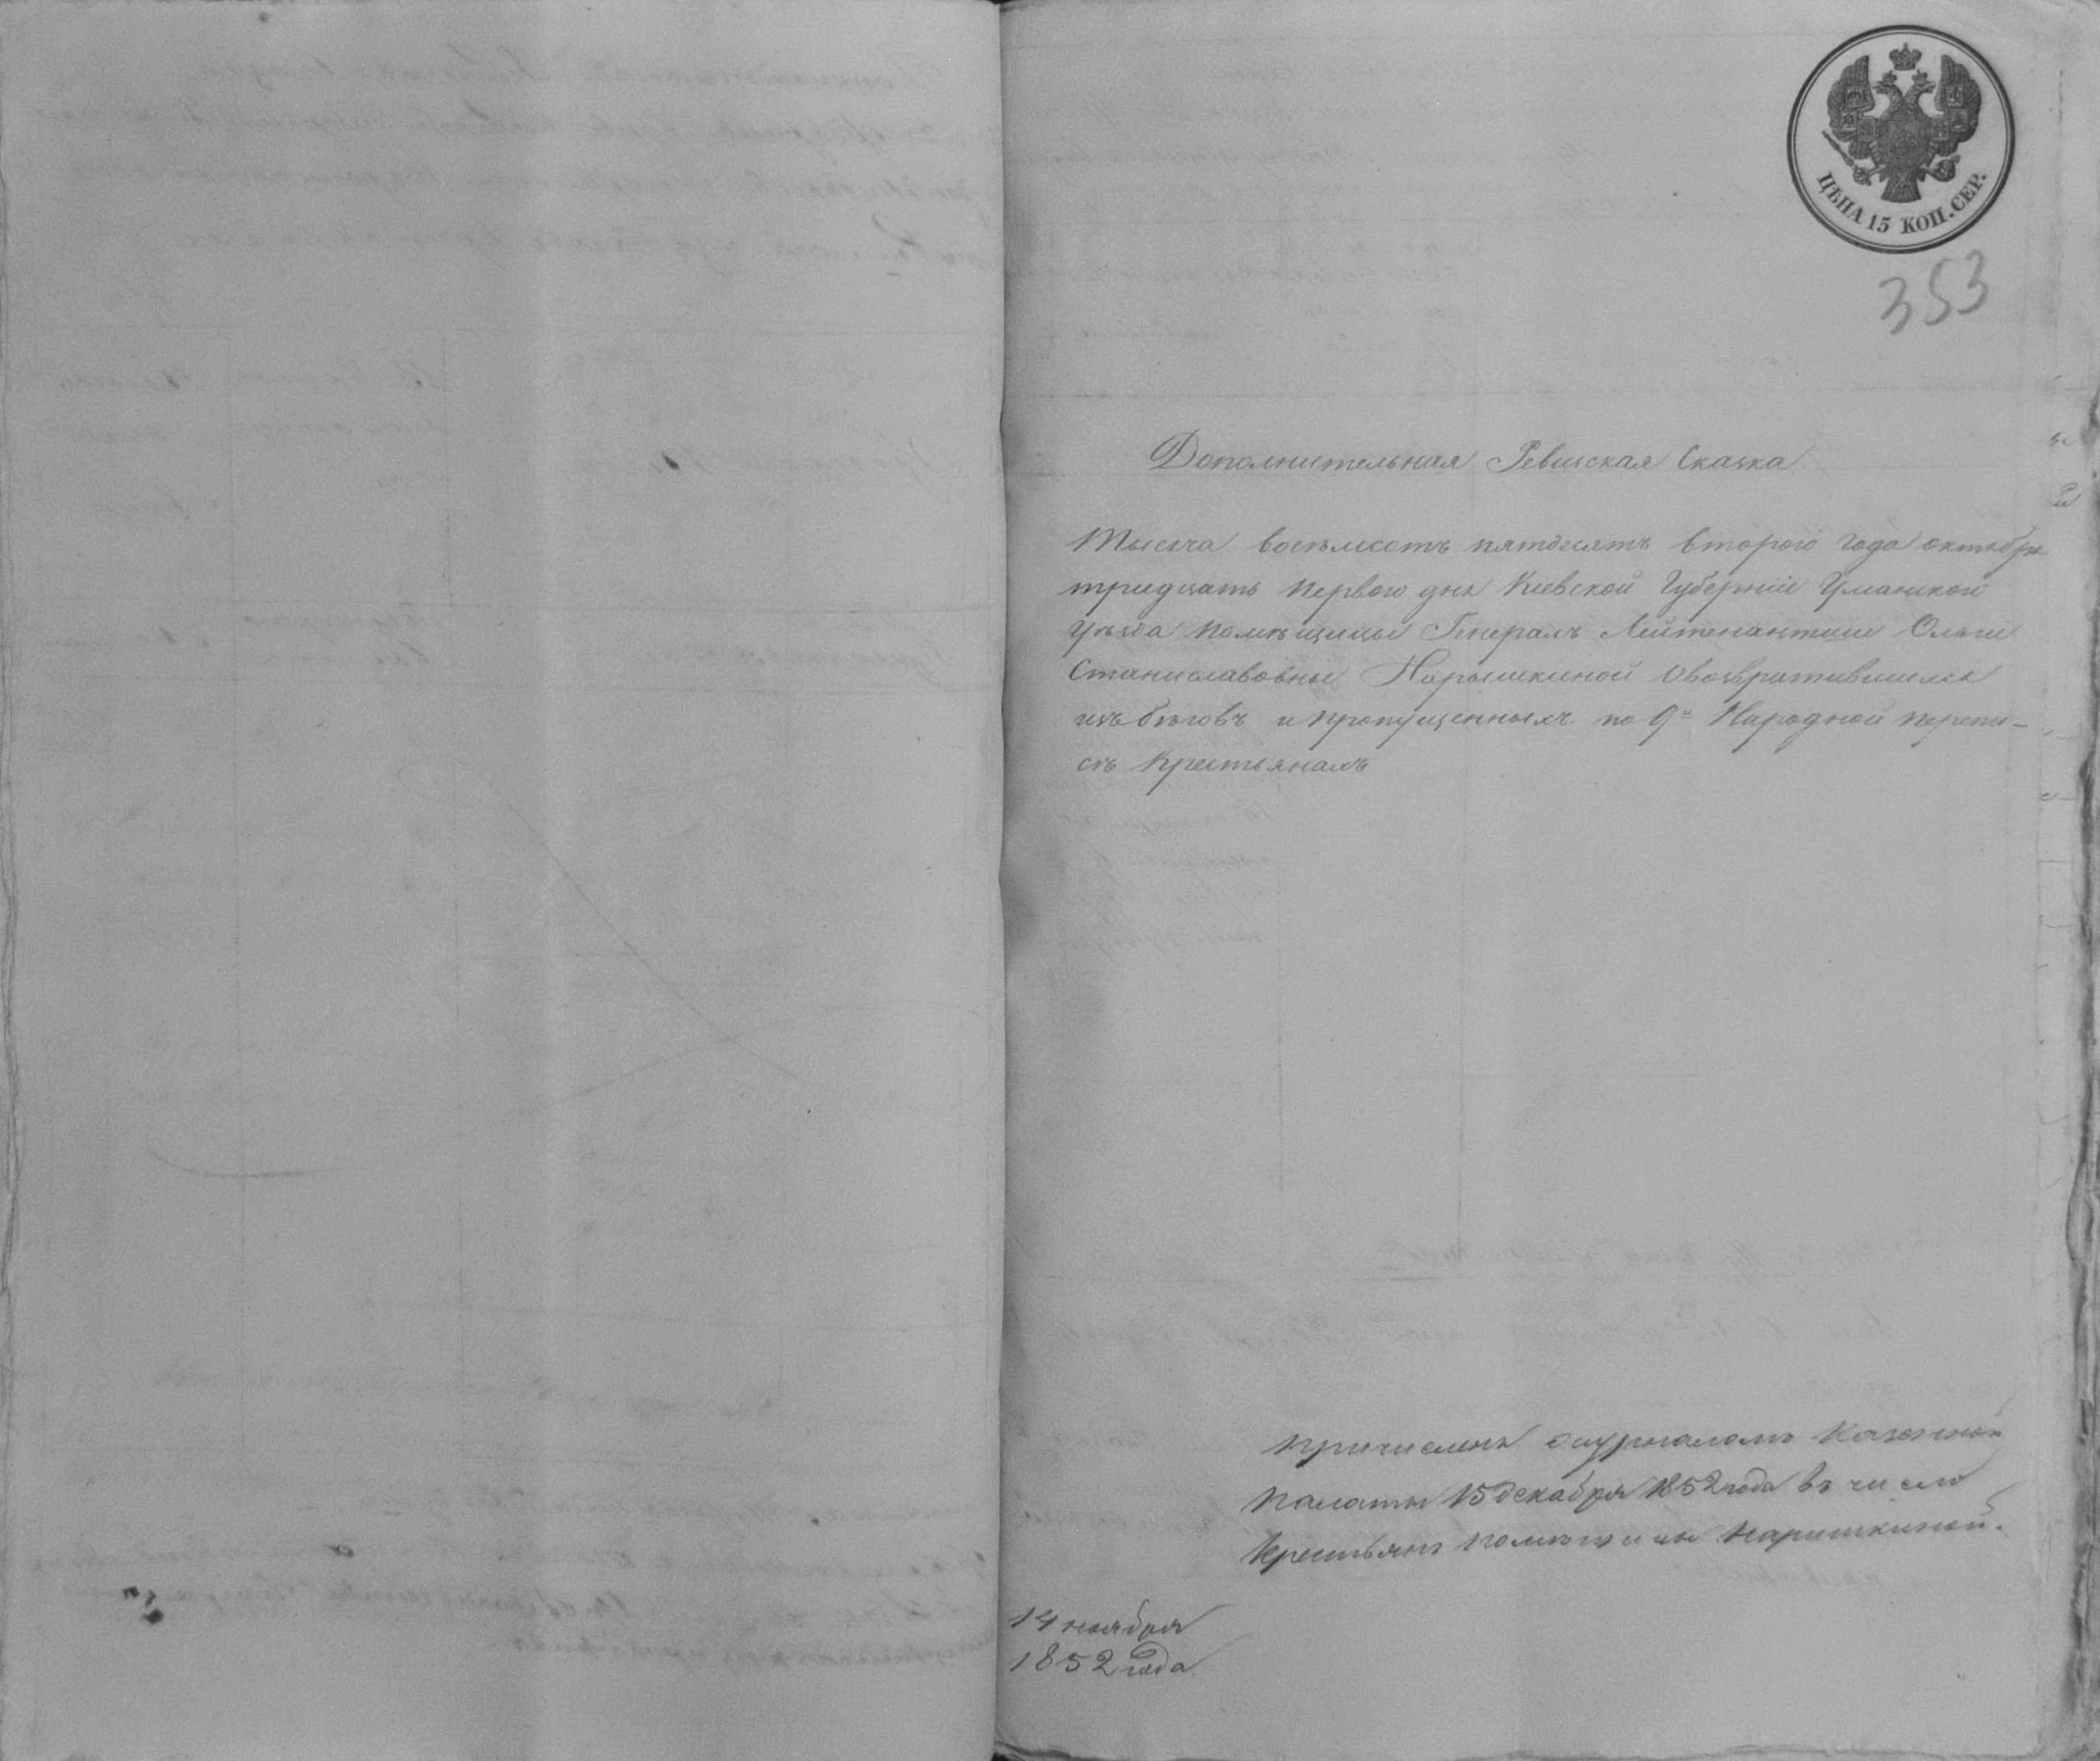 ЦѢНА 15 КОП. СЕР.
353
Дополнительная Ревизская Сказка
Тысяча восѣмсотъ пятдесятъ второго года октября
тридцать первого дня Кіевской Губерніи Уманской
Уѣзда помѣщицы Генералъ Лейтенантши Ольги
Станиславовны Нарышкиной овозвратившихся
изъ бѣговъ и пропущенныхъ по 9й Народной перепи-
сѣ Крестьянахъ
Причислены журналомъ Казенной
Палаты 15 декабря 1852 года въ число
Крестьянъ помѣщицы Наришкиной.
14 ноября
1852 года